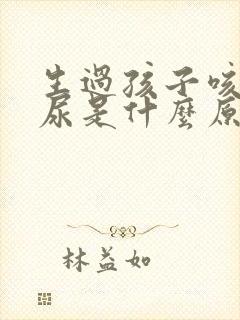 生過孩子咳
尿是什麼原
林益如